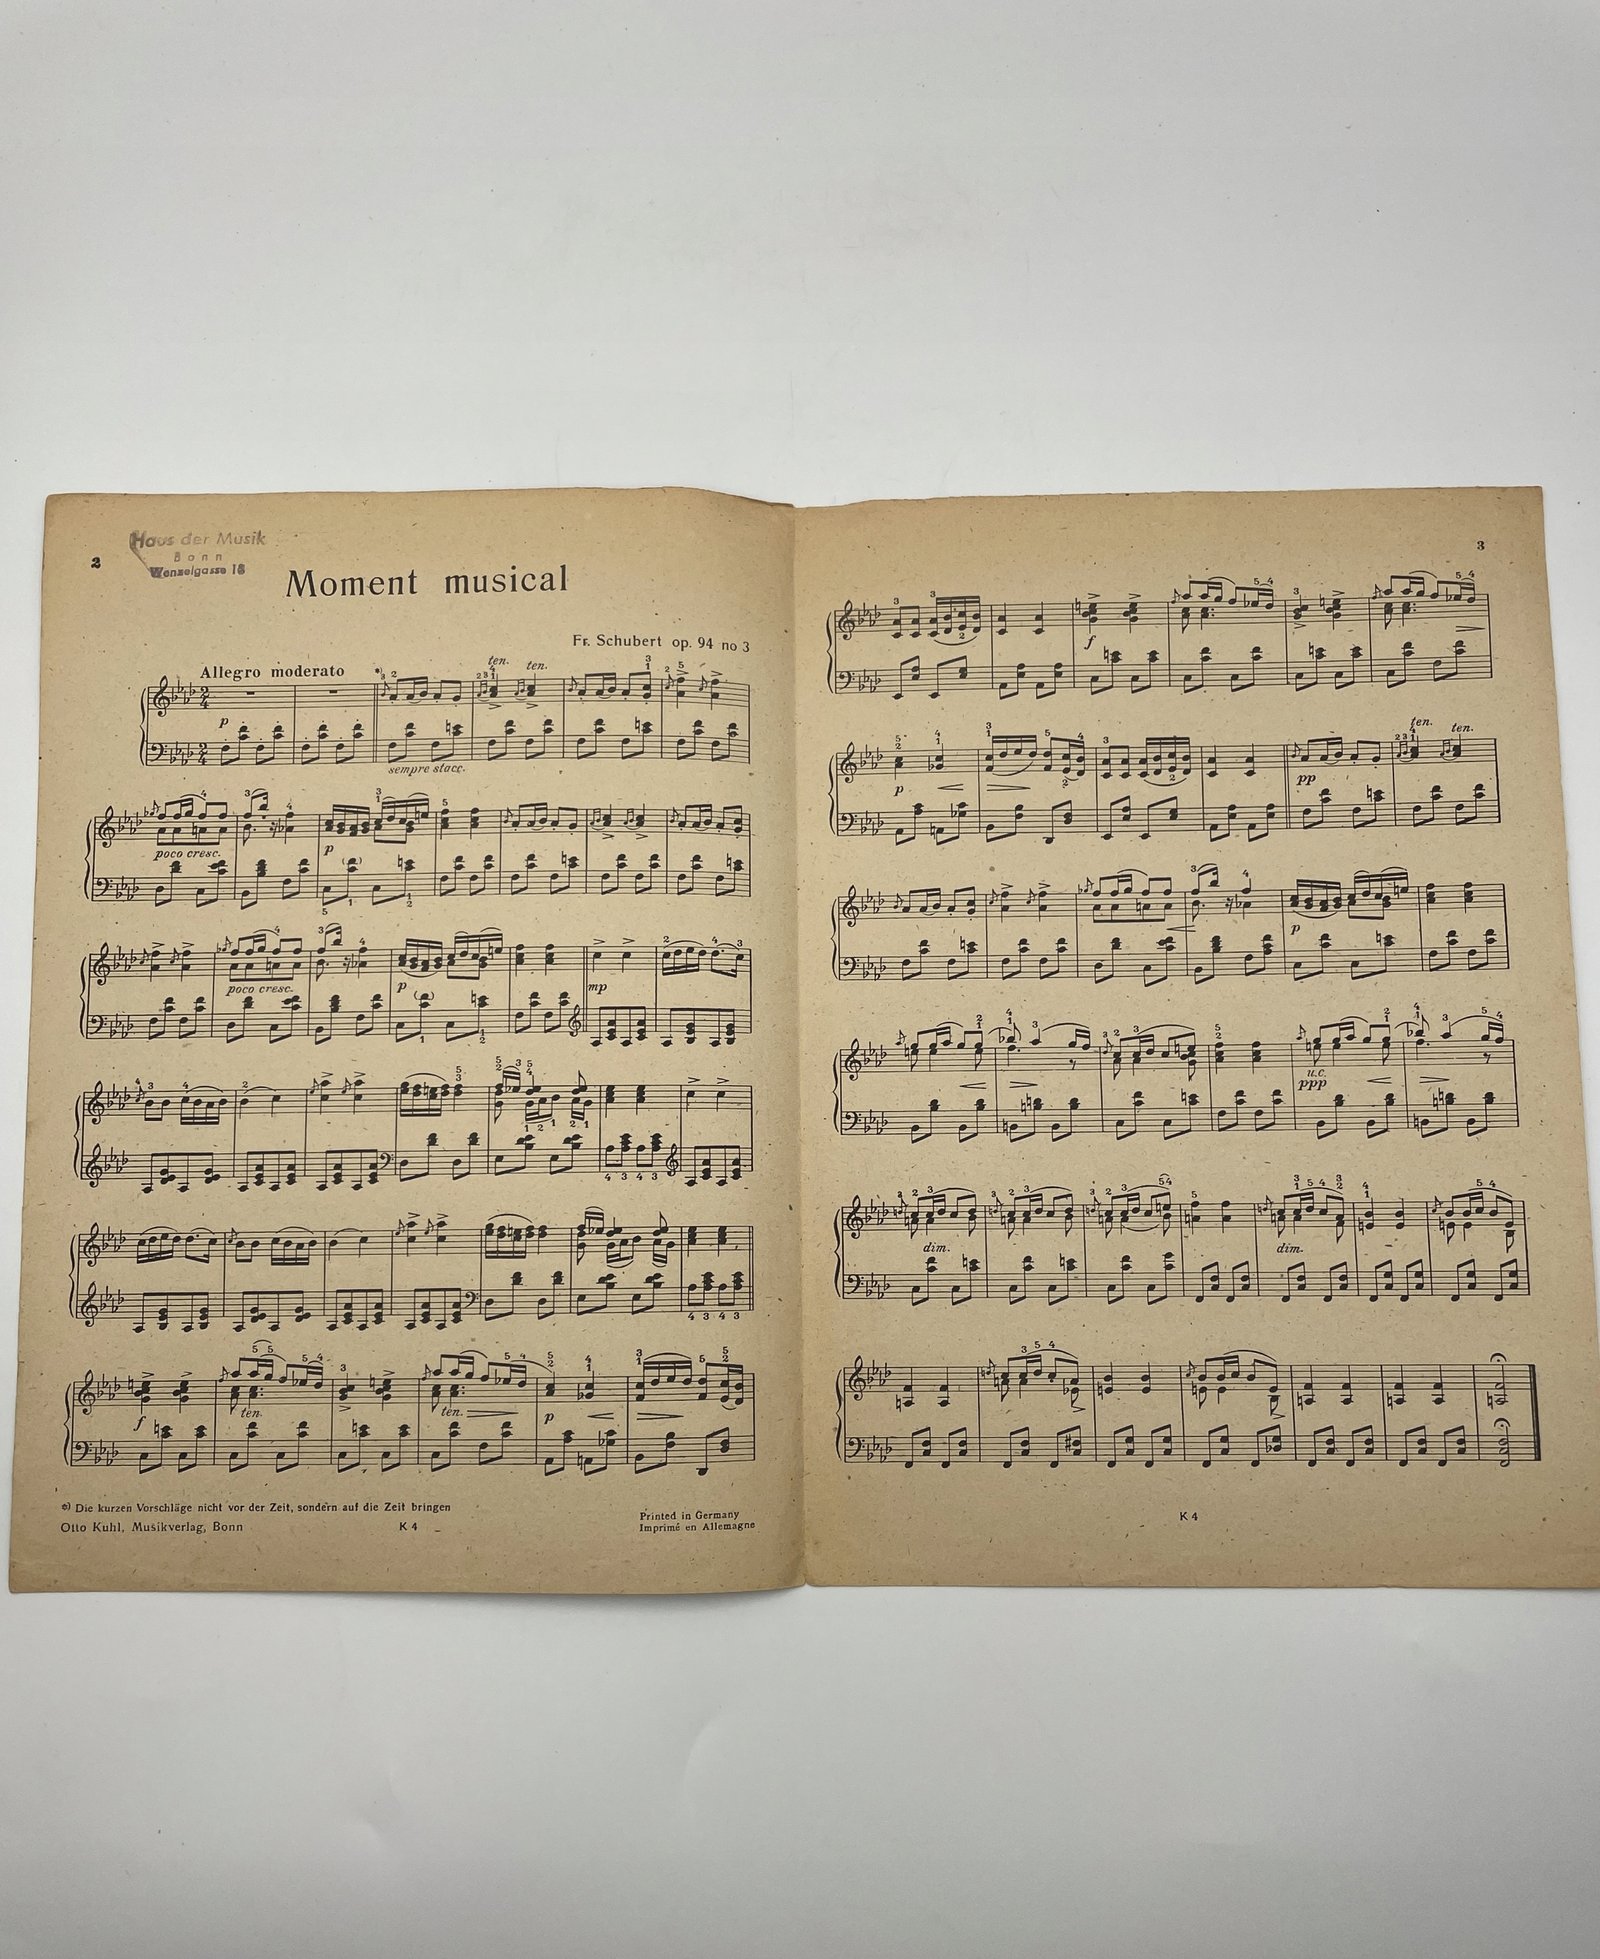 2
Haus der Musik
Bonn
Wenzelgasse 18
Moment musical
Fr. Schubert op. 94 no 3
Allegro moderato
ten. ten.
p
sempre stacc.
poco cresc.
p
poco cresc.
p
mp
f
ten.
ten.
p
*) Die kurzen Vorschläge nicht vor der Zeit, sondern auf die Zeit bringen
Otto Kuhl, Musikverlag, Bonn
K 4
Printed in Germany
Imprimé en Allemagne
3
f
ten. ten.
p
pp
p
u.c.
ppp
dim.
dim.
K 4